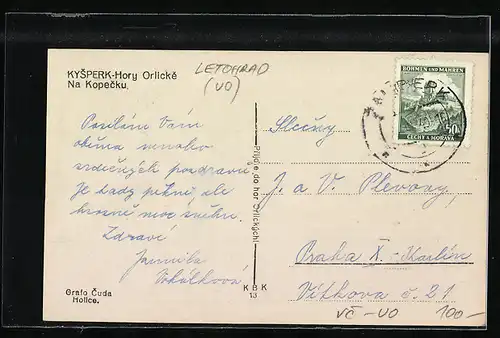 KYŠPERK-Hory Orlické
Na Kopečku.
LETOHRAD
(VO)
Posílám Vám
oběma mnoho
srdečných pozdravů.
Je tady pěkně, ale
hrozně moc sněhu.
Zdraví
Jarmila
Grafo Čuda
Holice.
Přijďte do hor Orlických!
K B K
13
BÖHMEN UND MÄHREN
50
ČECHY A MORAVA
Slečny
J. a V. Plevovy
Praha X. - Karlín
Vítkova č. 21
VČ - VO
100 -